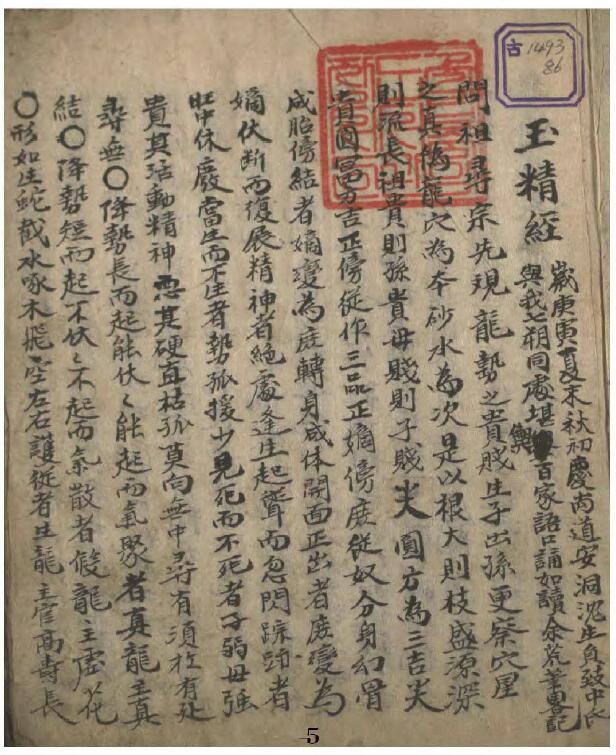 古 1493
86
玉精經
歲庚寅夏末秋初慶尚道安洞沈生員致中氏
與我七朔同處堪輿百家語口誦如讀余荒筆畧記
問祖尋宗先現龍勢之貴賤生子出孫更察穴星
之真偽龍穴為本砂水為次是以根大則枝盛源深
則流長祖貴則孫貴母賤則子賤尖圓方為三吉尖
貴圓富方吉正傍從作三品正嫡傍庶從奴分身幻骨
成胎傍結者嫡變為庶轉身成体開面正出者庶變為
嫡伏断而復展精神者絶處逢生起聳而忽閃踪跡者
旺中休廢當生而不生者勢孤援少見死而不死者子弱母強
貴其活動精神惡其硬直枯孤莫向無中尋有須於有處
尋無〇降勢長而起能伏〻能起而氣聚者真龍主真
結〇降勢短而起不伏〻不起而氣散者假龍主虛花
〇形如生蛇戱水啄木飛空左右護從者生龍主官高壽長
5